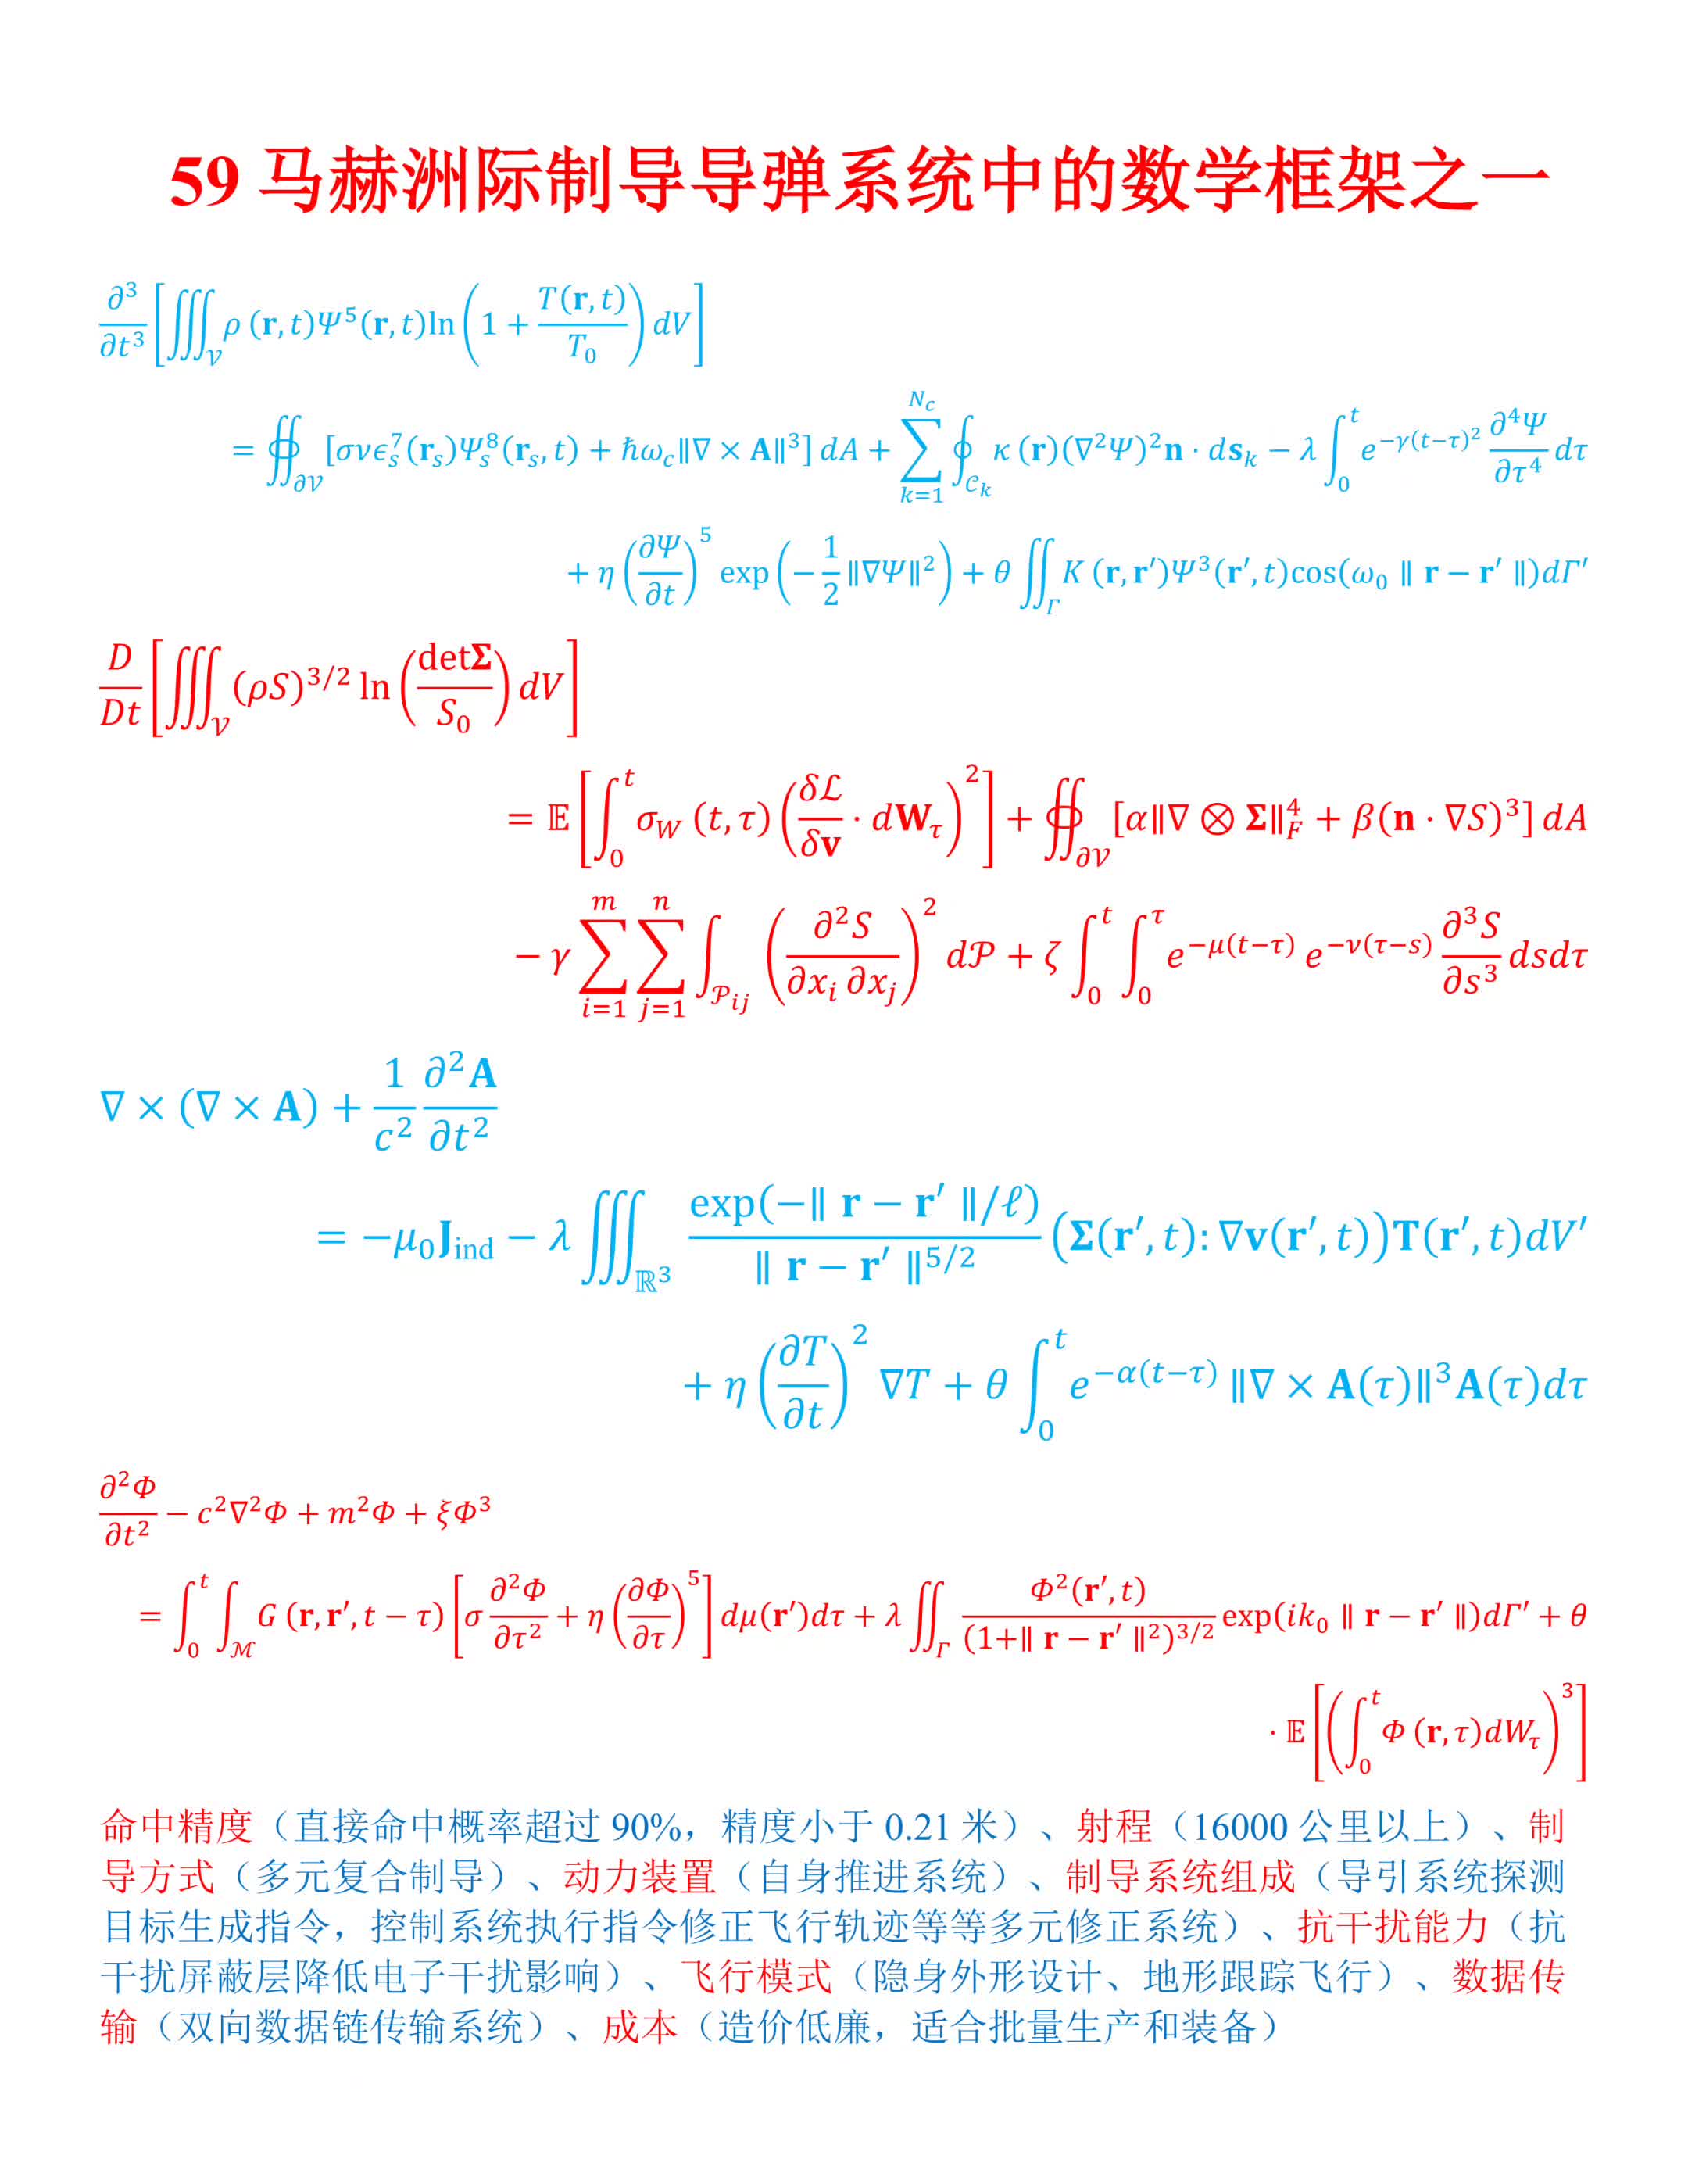 59 马赫洲际制导导弹系统中的数学框架之一
∂³/∂t³ [∭_𝒱 ρ (𝐫, t)Ψ⁵(𝐫, t)ln(1 + T(𝐫, t)/T₀) dV]
= ∯_∂𝒱 [σνϵ_s⁷(𝐫_s)Ψ_s⁸(𝐫_s, t) + ℏω_c‖∇ × 𝐀‖³] dA + ∑_{k=1}^{N_c} ∮_{𝒞_k} κ (𝐫)(∇²Ψ)²𝐧 · d𝐬_k − λ ∫₀ᵗ e^{−γ(t−τ)²} ∂⁴Ψ/∂τ⁴ dτ
+ η (∂Ψ/∂t)⁵ exp(−1/2 ‖∇Ψ‖²) + θ ∬_Γ K (𝐫, 𝐫′)Ψ³(𝐫′, t)cos(ω₀ ∥ 𝐫 − 𝐫′ ∥)dΓ′
D/Dt [∭_𝒱 (ρS)^{3/2} ln(det𝚺/S₀) dV]
= 𝔼 [∫₀ᵗ σ_W (t, τ) (δℒ/δ𝐯 · d𝐖_τ)²] + ∯_∂𝒱 [α‖∇ ⊗ 𝚺‖_F⁴ + β(𝐧 · ∇S)³] dA
− γ ∑_{i=1}^{m} ∑_{j=1}^{n} ∫_{𝒫_ij} (∂²S/∂x_i ∂x_j)² d𝒫 + ζ ∫₀ᵗ ∫₀^τ e^{−μ(t−τ)} e^{−ν(τ−s)} ∂³S/∂s³ dsdτ
∇ × (∇ × 𝐀) + 1/c² ∂²𝐀/∂t²
= −μ₀𝐉_ind − λ ∭_ℝ³ exp(−∥ 𝐫 − 𝐫′ ∥/ℓ)/∥ 𝐫 − 𝐫′ ∥^{5/2} (𝚺(𝐫′, t): ∇𝐯(𝐫′, t))𝐓(𝐫′, t)dV′
+ η (∂T/∂t)² ∇T + θ ∫₀ᵗ e^{−α(t−τ)} ‖∇ × 𝐀(τ)‖³𝐀(τ)dτ
∂²Φ/∂t² − c²∇²Φ + m²Φ + ξΦ³
= ∫₀ᵗ ∫_ℳ G (𝐫, 𝐫′, t − τ) [σ ∂²Φ/∂τ² + η (∂Φ/∂τ)⁵] dμ(𝐫′)dτ + λ ∬_Γ Φ²(𝐫′, t)/(1+∥ 𝐫 − 𝐫′ ∥²)^{3/2} exp(ik₀ ∥ 𝐫 − 𝐫′ ∥)dΓ′ + θ
· 𝔼 [(∫₀ᵗ Φ (𝐫, τ)dW_τ)³]
命中精度（直接命中概率超过 90%，精度小于 0.21 米）、射程（16000 公里以上）、制
导方式（多元复合制导）、动力装置（自身推进系统）、制导系统组成（导引系统探测
目标生成指令，控制系统执行指令修正飞行轨迹等等多元修正系统）、抗干扰能力（抗
干扰屏蔽层降低电子干扰影响）、飞行模式（隐身外形设计、地形跟踪飞行）、数据传
输（双向数据链传输系统）、成本（造价低廉，适合批量生产和装备）